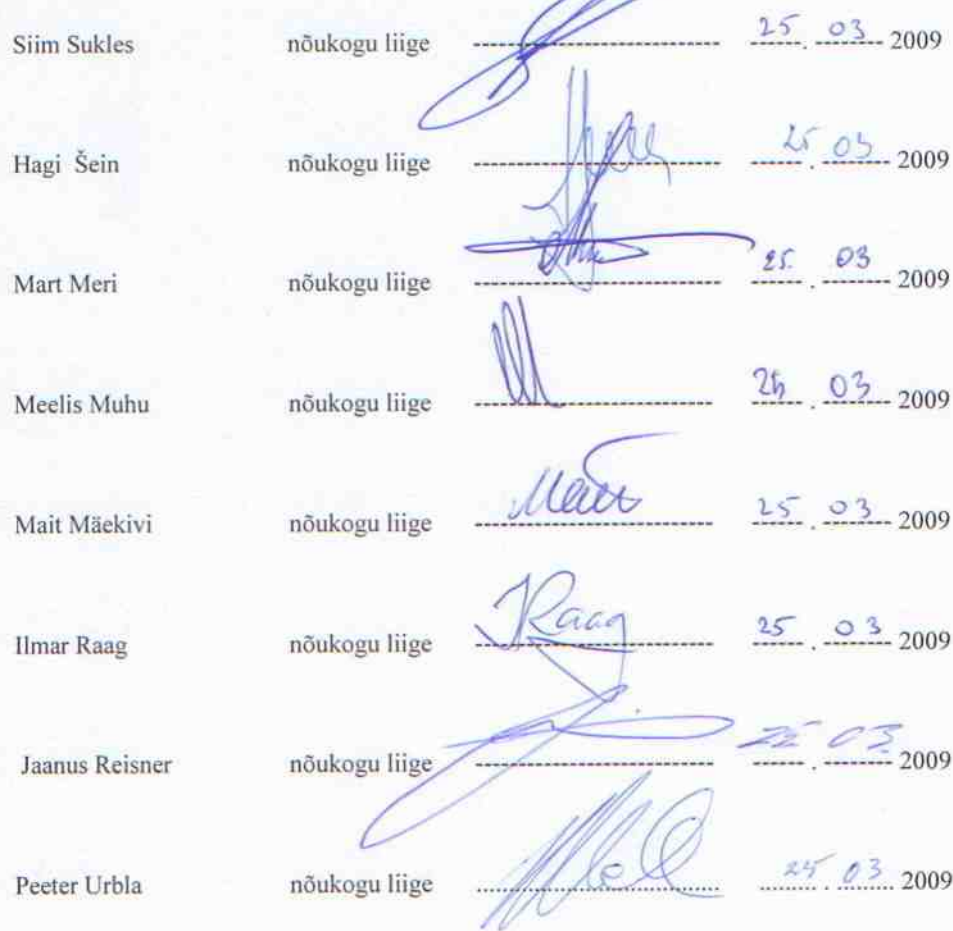 Siim Sukles nõukogu liige 25. 03 2009
Hagi Šein nõukogu liige 25. 03 2009
Mart Meri nõukogu liige 25. 03 2009
Meelis Muhu nõukogu liige 25. 03 2009
Mait Mäekivi nõukogu liige 25. 03 2009
Ilmar Raag nõukogu liige Raag 25. 03 2009
Jaanus Reisner nõukogu liige . 03 2009
Peeter Urbla nõukogu liige 25 03 2009